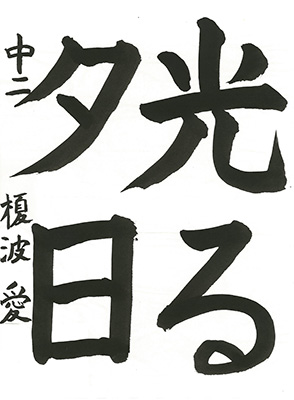 光る
夕日
中二 榎波 愛